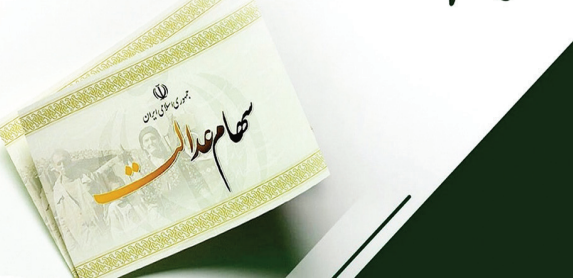 جمهوری اسلامی ایران
سهام عدالت